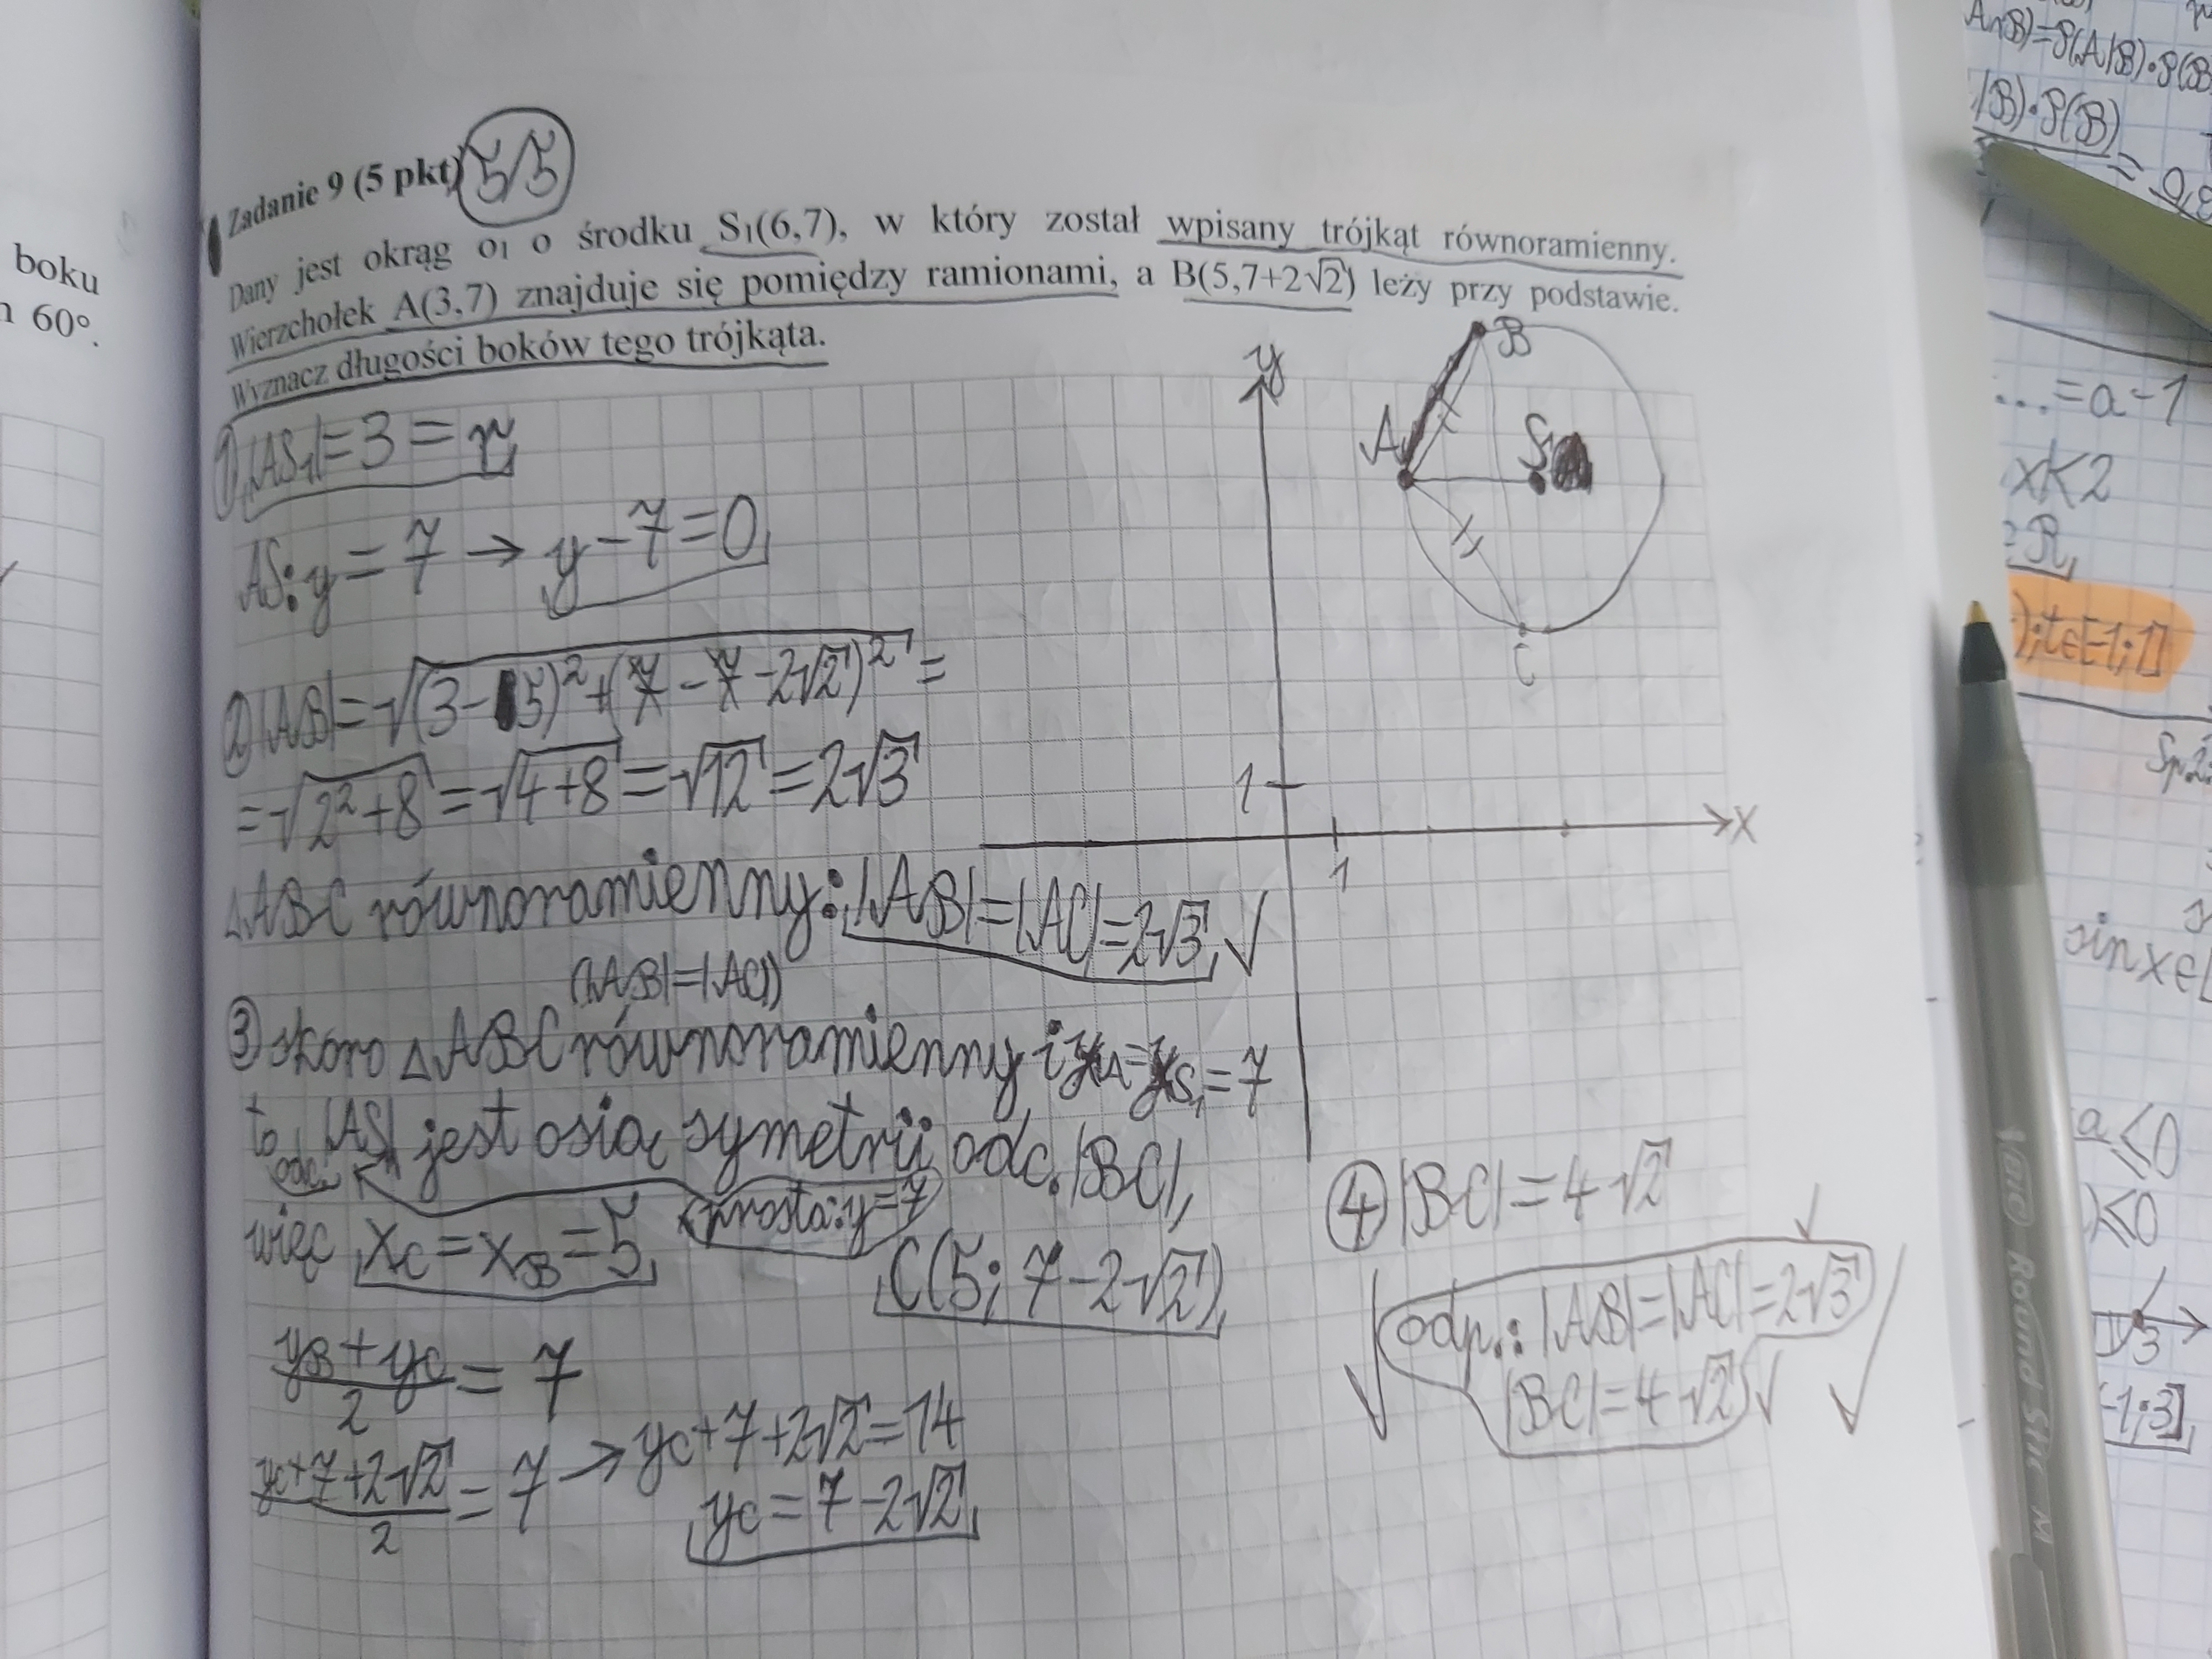 boku
60°.
Zadanie 9 (5 pkt) 5/5
Dany jest okrąg o₁ o środku S₁(6,7), w który został wpisany trójkąt równoramienny.
Wierzchołek A(3,7) znajduje się pomiędzy ramionami, a B(5,7+2√2) leży przy podstawie.
Wyznacz długości boków tego trójkąta.
① |AS₁|=3=r
AS: y=7 → y-7=0
② |AB|=√(3-5)²+(7-7-2√2)² =
=√2²+8=√4+8=√12=2√3
△ABC równoramienny: |AB|=|AC|=2√3 ✓
(|AB|=|AC|)
③ skoro △ABC równoramienny i yA=yS₁=7
to odc. |AS| jest osią symetrii odc. |BC|,
(prosta: y=7)
więc xC=xB=5
C(5; 7-2√2)
yB+yC/2=7
yC+7+2√2/2=7 → yC+7+2√2=14
yC=7-2√2
y
B
A
S₁
C
1
1
X
④ |BC|=4√2
✓ odp.: |AB|=|AC|=2√3 ✓
|BC|=4√2 ✓
A∩B)=P(A|B)·P(B
|B)·P(B)
...=a-1
x<2
R
);t∈[-1;1]
sinx∈[
a≤0
)≤0
3
-1;3]
BIC Round Stic M